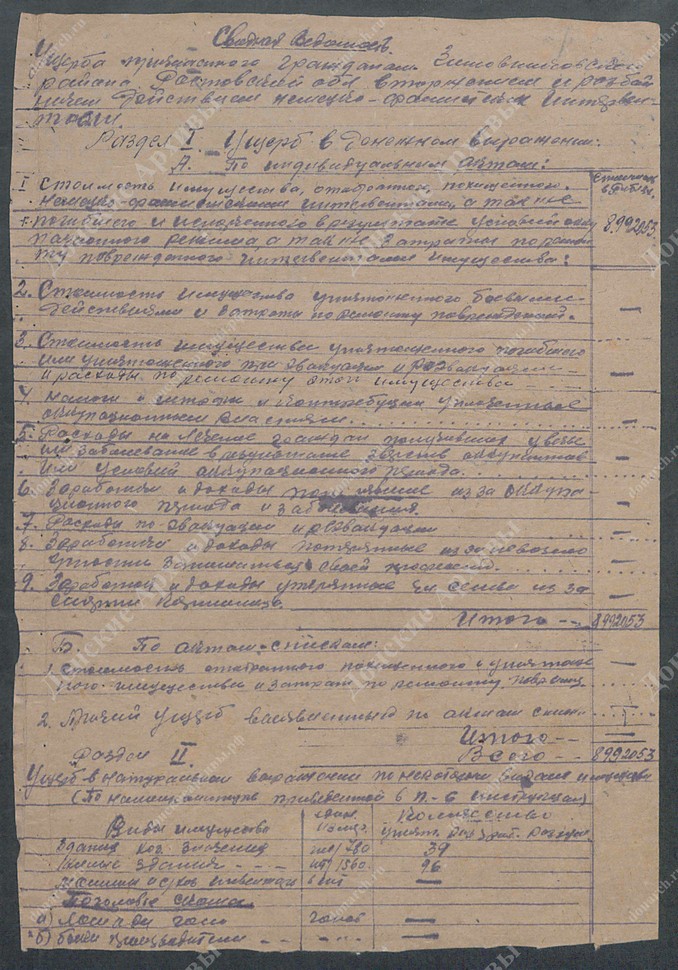 Сводная Ведомость
Ущерба причиненного гражданам Зимовниковского
района Ростовской обл вторжением и разбой
ничьи действиями немецко-фашистских интервен-
тами
Раздел I. Ущерб в денежном выражении:
А. По индивидуальным актам:
Стоимость
в рублях.
1 Стоимость имущества, отобранного, похищенного.
немецко-фашистскими интервентами, а так же
погибшего и испорченного в результате условий окку
пационного режима а так же затраты по ремон
ту поврежденного интервентами имущества:
8.992053
2. Стоимость имущества уничтоженного боевыми
действиями и затраты по ремонту поврежденн. —
3. Стоимость имущества уничтоженного погибшего
или уничтоженного при эвакуации и реэвакуации
и расходы по ремонту этого имущества —
4. Налоги штрафы и контрибуции уплоченные
оккупационным властям. —
5. Расходы на лечение граждан получивших увечье
или заболевание в результате зверств оккупантов
или условий оккупационного периода. —
6. Заработки и доходы из за оккупа
ционного периода и заболевания. —
7. Расходы по эвакуации и реэвакуации —
8. Заработки и доходы потерянные из за невозмо
жности заниматься своей профессией. —
9. Заработки и доходы утерянные чл семьи из за
смерти кормильца. —
Итого -- 8992053
Б. По актам-спискам:
1. Стоимость отобранного похищенного и уничтоже
ного имущества и затрат по ремонту поврежд. —
2. Прочий ущерб по актам списк.
Итого -- —
Раздел II. Всего -- 8992053
Ущерб в натуральном выражении по некоторым видам имущества
(По номенклатуре приведенной в п-6 инструкции)
Виды имущества един. измер. Количество
уничт.
здания хоз. значения 39
здания - - - 96
машины и с/хоз инвентарь —
Поголовье скота
а) Лошади голов —
б) быки производители -- - —
Донские Архивы
donarch.ru